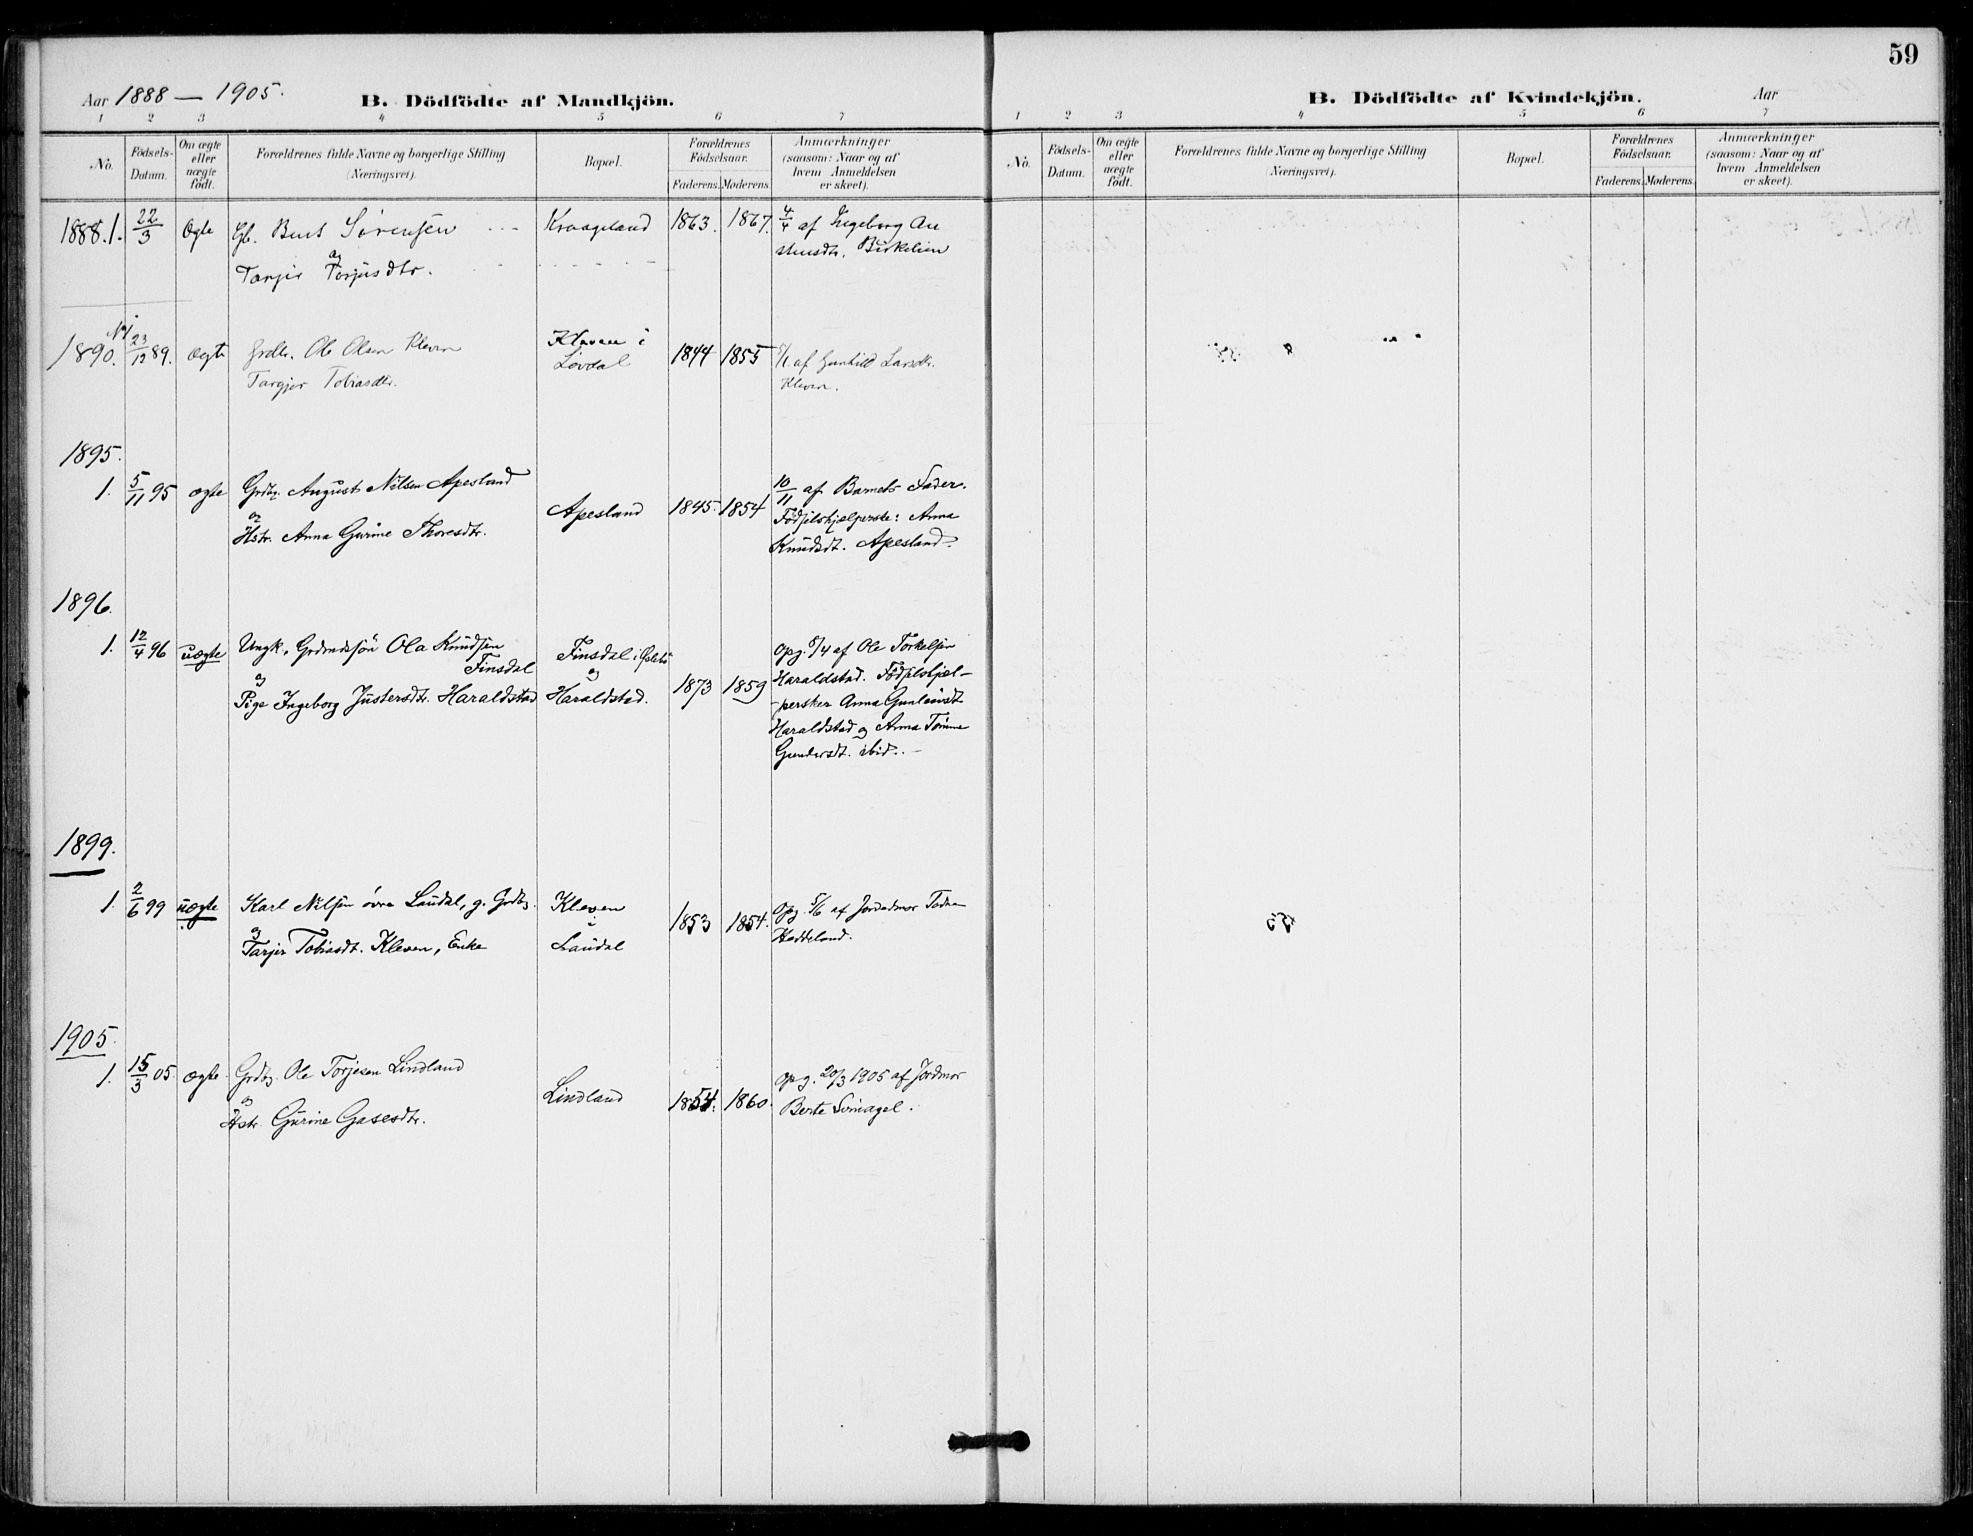 59
Aar 1888 — 1905.
B. Dödfödte af Mandkjön.
1 2 3 4 5 6 7
No.
Födsels-
Datum.
Om ægte
eller
uægte
födt.
Forældrenes fulde Navne og borgerlige Stilling
(Næringsvei).
Bopæl.
Forældrenes
Födselsaar.
Faderens. Moderens.
Anmærkninger
(saasom: Naar og af
hvem Anmeldelsen
er skeet).
1888. 1. 22/3 Ægte Gb. Bent Sörensen Kraageland 1863. 1867. 4/4 af Ingeborg An
stensdtr. Birkelien
og
Tarjer Torjusdtr.
1890. No 1. 23/12 89. ægte Grdbr. Ole Olsen Kleven Kleven i 1844 1855 /1 af Gunhild Larsdtr.
Targjer Tobiasdtr. Lövdal Kleven.
1895.
1. 5/11 95 ægte Grdbr. August Nilsen Apesland Apesland 1845. 1854 10/11 af Barnets Fader.
og
Hstr. Anna Gurine Thoresdtr.
Födselshjælperske: Anna
Knudsdt. Apesland.
1896.
1. 12/4 96 uægte Ungk. Grdmdssön Ola Knudsen
Finsdal
og
Pige Ingeborg Justersdtr. Haraldstad
Finsdal i Öslebö
og
Haraldstad.
1873 1859
Opg. 8/4 af Ole Torkelsen
Haraldstad. Födselshjæl-
persker Anna Gunleivsdt
Haraldstad og Anna Tomine
Gundersdt. ibid. –
1899.
1. 2/6 99 uægte Karl Nilsen övre Laudal, g. Grdbr. Kleven 1853 1854. Opg. 5/6 af Jordmor Todne
Haddeland.
og
Tarjer Tobiasdt. Kleven, Enke
i
Laudal
1905.
1. 15/3 05 ægte Grdbr. Ole Torjesen Lindland Lindland 1854. 1860. opg. 20/3 1905 af Jordmor
og
Hstr. Gurine Gasesdtr.
Berte
B. Dödfödte af Kvindekjön.
Aar
1 2 3 4 5 6 7
No.
Födsels-
Datum.
Om ægte
eller
uægte
födt.
Forældrenes fulde Navne og borgerlige Stilling
(Næringsvei).
Bopæl.
Forældrenes
Födselsaar.
Faderens. Moderens.
Anmærkninger
(saasom: Naar og af
hvem Anmeldelsen
er skeet).